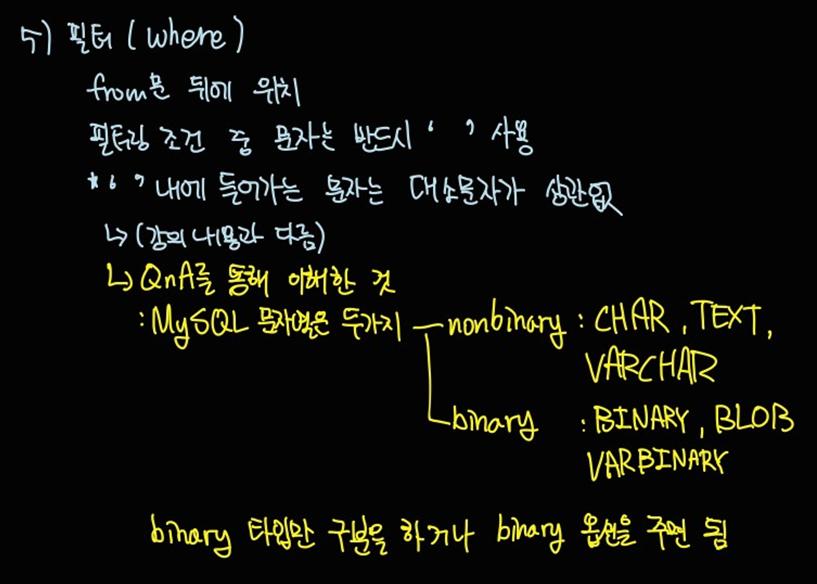 5) 필터 (where)
from문 뒤에 위치
필터링 조건 중 문자는 반드시 ‘ ’ 사용
*‘ ’ 내에 들어가는 문자는 대소문자가 상관없
↳ (강의 내용과 다름)
↳ QnA를 통해 이해한 것
: MySQL 문자열은 두가지 nonbinary : CHAR, TEXT,
VARCHAR
binary : BINARY, BLOB
VARBINARY
binary 타입만 구분을 하거나 binary 옵션을 주면 됨